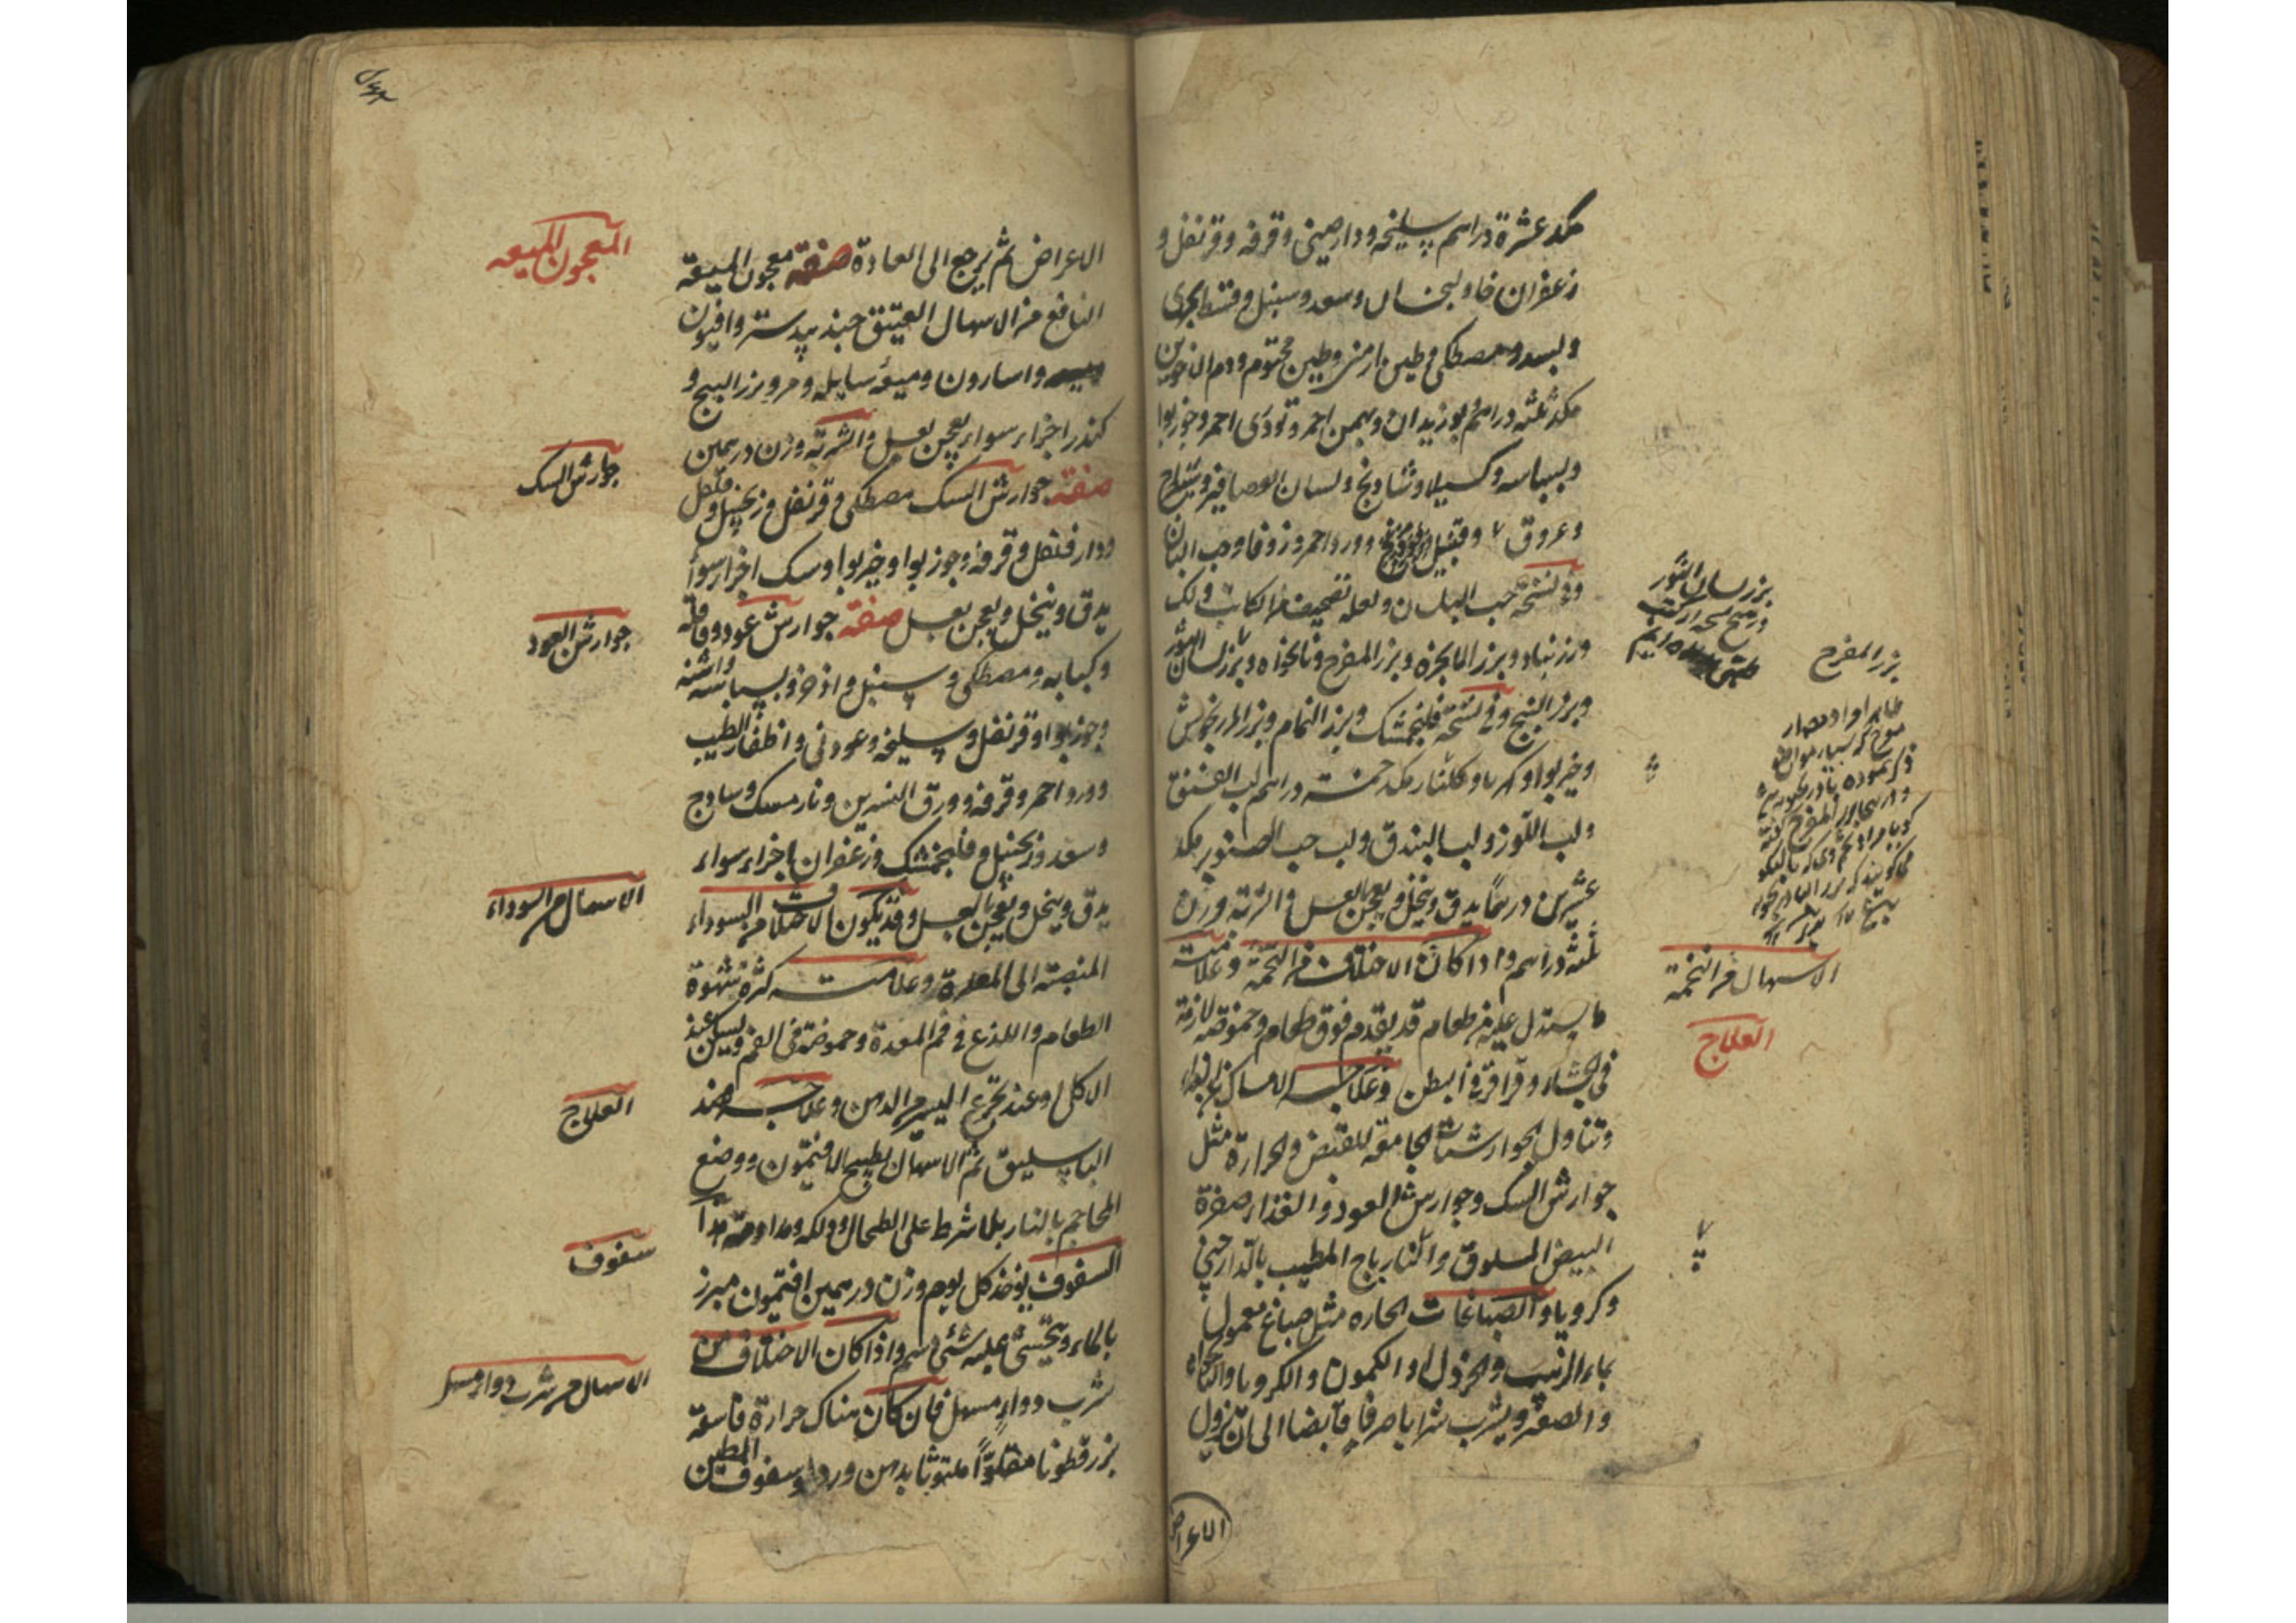 مكد عشرة دراهم سليخه ودارصينى وقرفه وقرنفل و
زعفران خاولنجان وسعد وسنبل وقسط بحرى
وبسد ومصطكى وطين ارمنى وطين مختوم ودم الاخوين
مكد ثلثه دراهم بوزيدان وبهمن احمر وتودرى احمر وجوزبوا
وبسباسه وكسيلا وشادنج ولسان العصافير وشيطرج
وعروق وقنبيل وورد احمر وزوفا وحب البان
وفى نسخة حب البلسان ولعله تصحيف من الكاتب ولك
وزرنباد وبزر الانجره وبزر المفرح ونانخواه وبزر لسان الثور
وبزر البنج وفى نسخة فلنجمشك وبزر النمام وبزر المرزنجوش
وخيربوا وكهربا وجلنار مكد خمسة دراهم لب الفستق
ولب اللوز ولب البندق ولب حب الصنوبر مكد
عشرين درهما يدق وينخل ويعجن بالعسل والشربة وزن
ثلثه دراهم واذا كان الاختلاف من التخمة وعلامته
ما يستدل عليه من طعام قد يقدم فوق طعام وحموضة لازمة
فى الجشاء وقراقر فى البطن وعلاجه الامساك عن الغذاء
وتناول الجوارشنات الجامعة للقبض والحرارة مثل
جوارش السك وجوارش العود والغذاء صفرة
البيض المسلوق والنارباج المطيب بالدارچينى
وكرويا والصباغات الحاره مثل صباغ معمول
بماء الزبيب والخردل او الكمون والكرويا والنانخواه
والصعتر ويشرب شرابا صرفا قابضا الى ان يزول
الاعراض
بزر لسان الثور
بزر المفرح
الاسهال من التخمة
العلاج
الاعراض ثم يرجع الى العادة صفة معجون الميعة
النافع من الاسهال العتيق جندبيدستر وافيون
واسارون وميعه سايله ومر وبزر البنج و
كندر اجزاء سواء يعجن بعسل والشربة وزن درهمين
صفة جوارش السك مصطكى وقرنفل وزنجبيل وفلفل
ودارفلفل وقرفه وجوزبوا وخيربوا وسك اجزاء سواء
يدق وينخل ويعجن بعسل صفة جوارش عود وقاقله
وكبابه ومصطكى وسنبل واذخر وبسباسه واشنه
وجوزبوا وقرنفل وسليخه وعود نى واظفار الطيب
وورد احمر وقرفه وورق النسرين ونارمسك وسادج
وسعد وزنجبيل وفلنجمشك وزعفران اجزاء سواء
يدق وينخل ويعجن بالعسل وقد يكون الاختلاف من السوداء
المنصبة الى المعدة وعلامته كثرة شهوة
الطعام واللذع فى فم المعدة وحموضة فى الفم ويسكن عند
الاكل وعند تجرع اليسير من الدهن وعلاجه فصد
الباسليق ثم الاسهال بطبيخ الافتيمون ووضع
المحاجم بالنار بلا شرط على الطحال ودلكه ومداومة هذا
السفوف يوخذ كل يوم وزن درهمين افتيمون مبرز
بالماء ويتحسى عليه شئ دسم واذا كان الاختلاف من
شرب دواء مسهل فان كان هناك حرارة فاسقه
بزرقطونا مقلوا ملتوثا بدهن ورد او سفوف الطين
المعجون الميعه
جوارش السك
جوارش العود
الاسهال من السوداء
العلاج
سفوف
الاسهال من شرب دواء مسهل